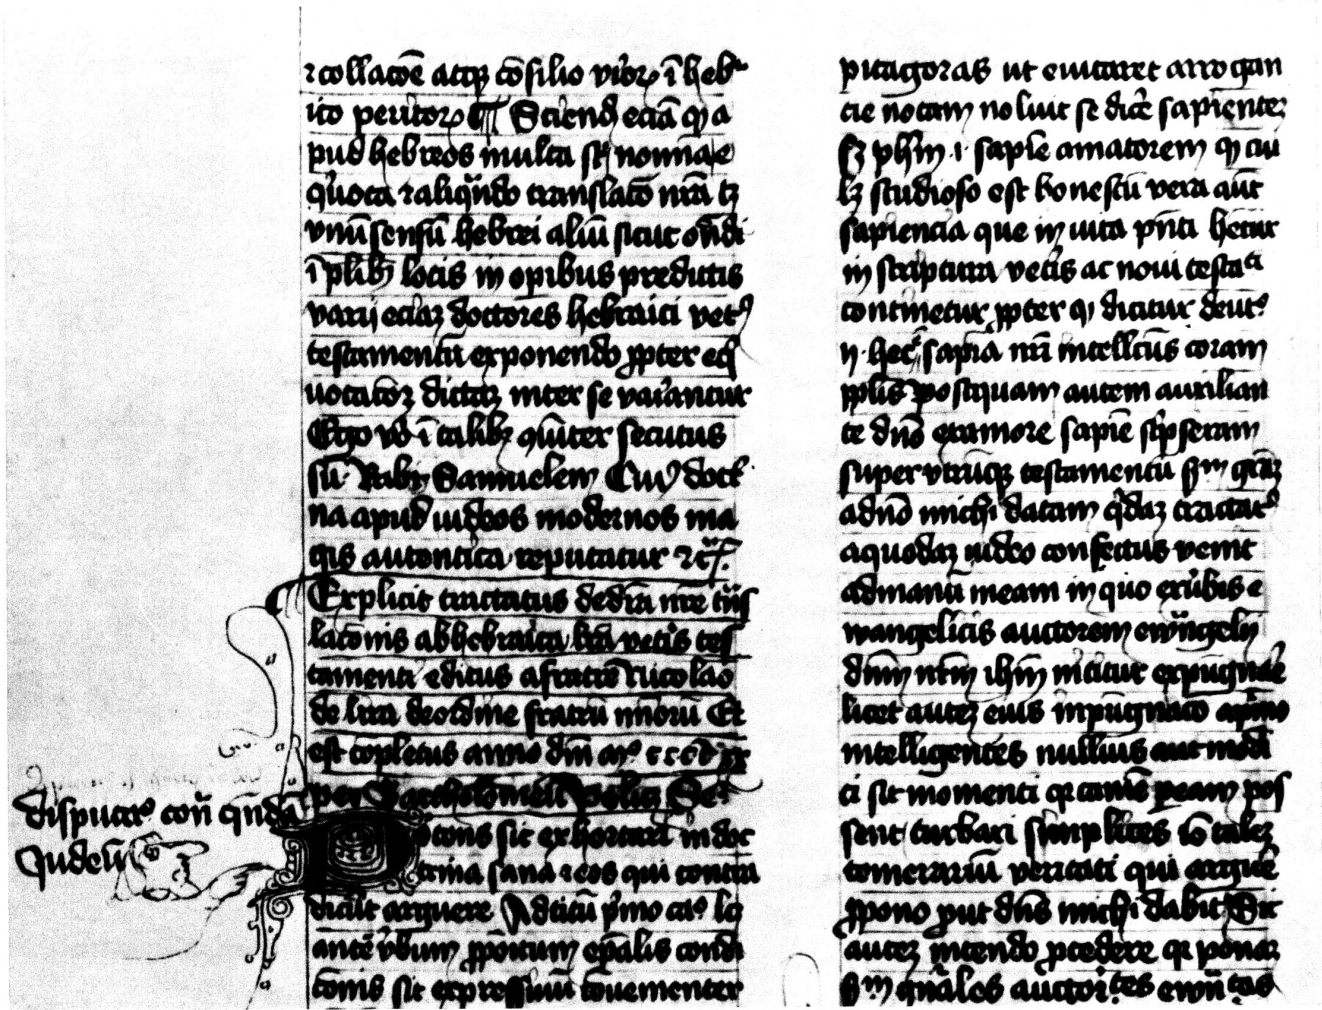 ⁊ collacōe atq̨ cōsilio viroꝝ ī heb
ico peritoꝝ ¶ Sciend ecia ꝙ a
pud hebreos multa st nomina e
quoca ⁊ aliqn̄do translacō nr̄a hꝫ
vnū sensū hebrei aliū sicut on̄di
ī plibꝫ locis in opibus predictis
varij eciaꝫ doctores hebraici vetꝰ
testamentū exponendo ꝓpter eq̄
uocacōeꝫ dictaꝫ inter se variantur
Ego vō ī talibꝫ cōiter secutus
sū Rabi Samuelem Cuiꝰ doct
na apud iudeos modernos ma
gis autentica reputatur ⁊cꝭ.
Explicit tractatus de dr̄ia nr̄e trās
lacōnis ab hebraica lr̄a vetis tes
tamenti editus a fratre Nicolao
de lira de ordine fratrū mīorū Et
est cōpletus anno dn̄i mº cccº xx
per Bartholomeū
Disputacº cont̄ quēda
Iudeū
Potens sit exhortari in doc
trina sana ⁊ eos qui contra
dicūt arguere Ad titū pͥmo caº lꝫ
ante vbum ꝓpōitum epalis condi
cōnis sit expressiuū cōuenienter
pitagoras ut euitaret arrogan
cie notam noluit se dicē sapienteꝫ
sꝫ ph̄m .i. sapīe amatorem ꝙ cui
lꝫ studioso est honestū vera aūt
sapiencia que in uita pn̄ti hētur
in scriptura vetis ac noui testati
continetur ꝓpter ꝙ dicitur deutº
ij. hec ē sapīa nr̄a intellcūs coram
pplis postquam autem auxilian
te dn̄o ex amore sapīe scͥpseram
super vtrūqꝫ testamentū sᵐ grāꝫ
a dn̄o michi datam qͥdaꝫ tractatꝰ
a quodaꝫ iudeo confectus venit
ad manū meam in quo ex v̄bis e
wangelicis auctorem ewngelij
dn̄m nr̄m ih̄m nititur expugnare
licet auteꝫ eius inpugnacō apud
intelligentes nullius aut modi
ci sit momenti qꝛ tamē p eam pos
sent turbari simplices iō taleꝫ
temerariū veritati qui arguē
ꝓpono ꝓut dn̄s michi dabit Sic
auteꝫ intendo ꝓcedere qꝛ ponaꝫ
pͥᵐ qͥ ales auctoritates ewn̄